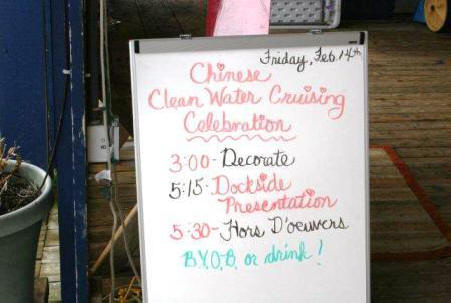 Friday, Feb 14th
Chinese
Clean Water Cruising
Celebration
3:00 - Decorate
5:15 - Dockside
Presentation
5:30 - Hors D'oeuvers
B.Y.O.B. or drink!